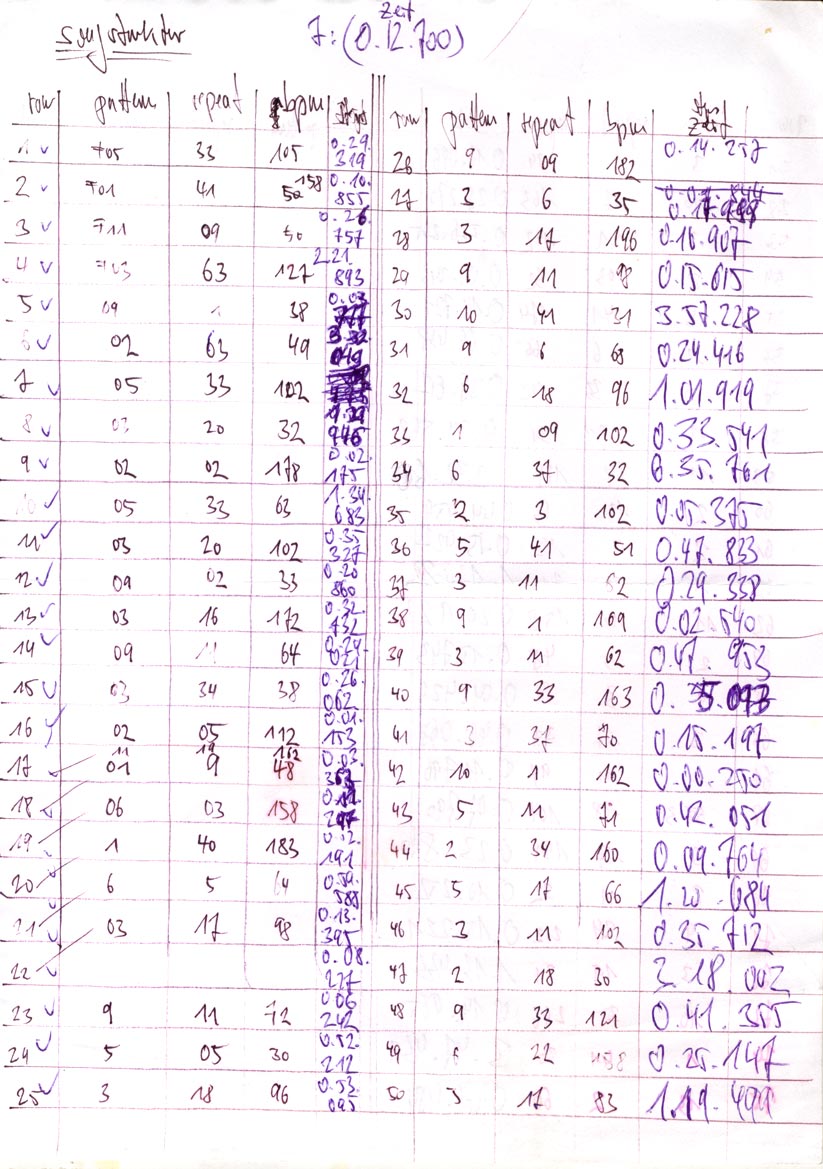 songstruktur
Zeit
7: (0.12.700)
row pattern repeat bpm
1 ✓ F05 33 105 0.29.319
2 ✓ F01 41 158 0.10.855
3 ✓ F11 09 50 0.26.757
4 ✓ F03 63 127 2.21.893
5 ✓ 09 1 38 0.03.
6 ✓ 02 63 49 3.32.049
7 ✓ 05 33 102
8 ✓ 03 20 32 946
9 ✓ 02 02 178 0.02.175
10 ✓ 05 33 63 1.34.683
11 ✓ 03 20 102 0.35.327
12 ✓ 09 02 33 0.20.860
13 ✓ 03 16 172 0.32.432
14 ✓ 09 11 64 0.24.021
15 ✓ 03 34 38 0.26.062
16 ✓ 02 05 112 0.01.153
11 19 162
17 ✓ 01 9 48 0.03.
18 ✓ 06 03 158 297
19 ✓ 1 40 183 0.12.191
20 ✓ 6 5 64 0.59.588
21 ✓ 03 17 98 0.13.395
22 ✓ 0.08.227
23 ✓ 9 11 72 0.06.242
24 ✓ 5 05 30 0.52.212
25 ✓ 3 18 96 0.53.095
row pattern repeat bpm Zeit
26 9 09 182 0.14.257
27 3 6 35 0.17.999
28 3 17 196 0.16.907
29 9 11 98 0.15.015
30 10 41 31 3.57.228
31 9 6 68 0.24.416
32 6 18 96 1.01.919
33 1 09 102 0.33.541
34 6 37 32 0.35.761
35 2 3 102 0.05.375
36 5 41 51 0.47.833
37 3 11 52 0.29.338
38 9 1 169 0.02.540
39 3 11 62 0.47.953
40 9 33 163 0.35.093
41 3 37 70 0.15.197
42 10 1 162 0.00.250
43 5 11 71 0.42.051
44 2 34 160 0.09.764
45 5 17 66 1.20.684
46 3 11 102 0.35.712
47 2 18 30 3.18.002
48 9 33 121 0.41.355
49 6 22 158 0.25.147
50 3 17 83 1.19.499